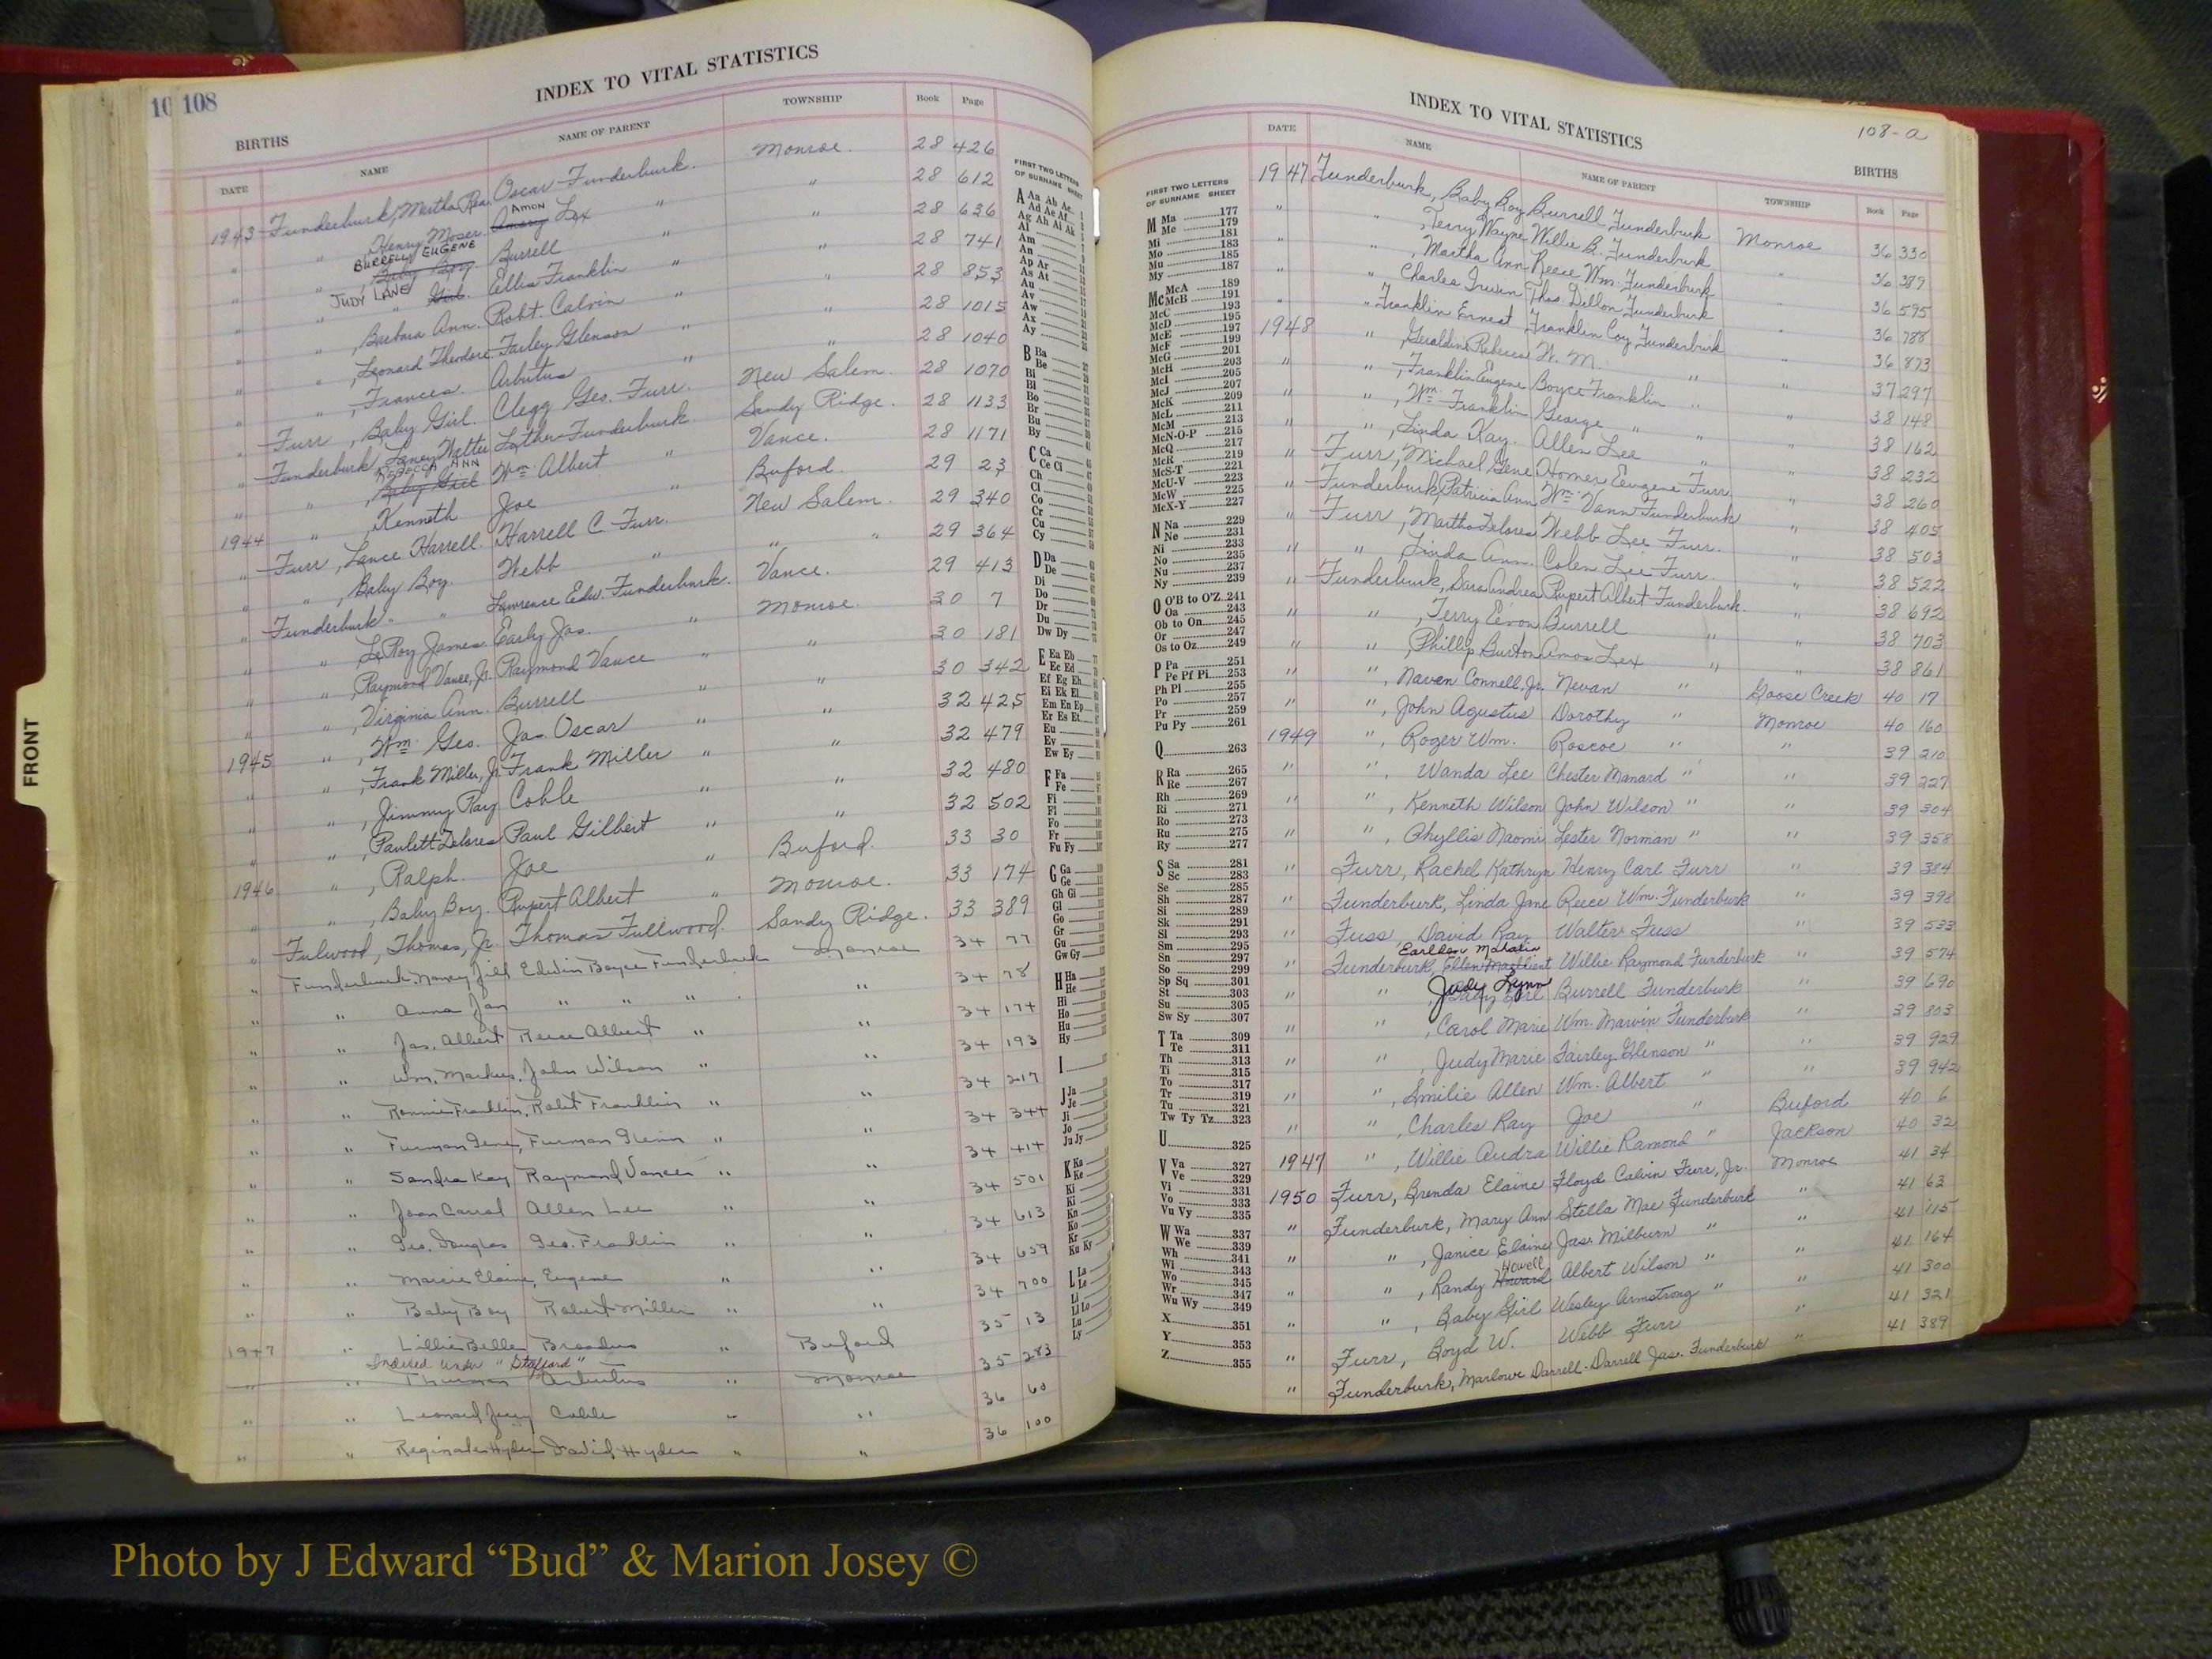 10 108
INDEX TO VITAL STATISTICS
BIRTHS
DATE NAME NAME OF PARENT TOWNSHIP Book Page
1943 Funderburk, Martha Rea. Oscar Funderburk. Monroe. 28 426
" " Henry Moser. Amon Lex " " 28 612
" " BURRELL EUGENE Baby Boy. Burrell " 28 636
" " JUDY LANE Girl. Ellis Franklin " " 28 741
" " , Barbara Ann. Robt. Calvin " " 28 853
" " , Leonard Theodore. Farley Glenson " " 28 1015
" " , Frances. Arbutus " " 28 1040
" Furr, Baby Girl. Clegg Geo. Furr. New Salem. 28 1070
" Funderburk, Luther Funderburk Sandy Ridge. 28 1133
" " , REBECCA ANN Baby Girl. Wm. Albert " Vance. 28 1171
1944 " , Kenneth Joe " Buford. 29 23
" Furr, Lance Harrell. Harrell C. Furr. New Salem. 29 340
" " , Baby Boy. Webb " " " 29 364
" Funderburk " " Lawrence Edw. Funderburk. Vance. 29 413
" " LeRoy James. Early Jas. " Monroe. 30 7
" " , Raymond Vance, Jr. Raymond Vance " " 30 181
" " , Virginia Ann. Burrell " " 30 342
1945 " , Wm. Geo. Jas. Oscar " " 32 425
" " , Frank Miller, Jr. Frank Miller " " 32 479
" " , Jimmy Ray Coble " " 32 480
" " , Paulett Delores Paul Gilbert " " 32 502
1946 " , Ralph. Joe " Buford. 33 30
" " , Baby Boy. Rupert Albert " Monroe. 33 174
" Fulwood, Thomas, Jr. Thomas Fullwood. Sandy Ridge. 33 389
" Funderburk, Nancy Jill Edwin Boyce Funderburk Monroe 34 77
" " Anna Jan " " " " 34 78
" " Jas. Albert Reece Albert " " 34 174
" " Wm. Markus. John Wilson " " 34 193
" " Ronnie Franklin, Robt Franklin " " 34 217
" " Furman Gene, Furman Glenn " " 34 344
" " Sandra Kay Raymond Vance " " 34 414
" " Joan Carrol Allen Lee " " 34 501
" " Geo. Douglas Geo. Franklin " " 34 613
" " Marcie Elaine, Eugene " " 34 659
" " Baby Boy Robert Miller " " 34 700
1947 " Lillie Belle Broadus " Buford 35 13
Indexed Under "Stafford"
" " Thurman Arbutus " Monroe 35 283
" " Leonard Jerry Coble " " 36 60
" " Reginale Hyder David Hyder " " 36 100
FIRST TWO LETTERS
OF SURNAME SHEET
A Aa Ab Ac
Ad Ae Af
Ag Ah Ai Ak
Al
Am
An
Ap Ar
As At
Au
Av
Aw
Ax
Ay
B Ba
Be
Bi
Bl
Bo
Br
Bu
By
C Ca
Ce Ci
Ch
Cl
Co
Cr
Cu
Cy
D Da
De
Di
Do
Dr
Du
Dw Dy
E Ea Eb
Ec Ed
Ef Eg Eh
Ei Ek El
Em En Ep
Er Es Et
Eu
Ev
Ew Ey
F Fa
Fe
Fi
Fl
Fo
Fr
Fu Fy
G Ga
Ge
Gh Gi
Gl
Go
Gr
Gu
Gw Gy
H Ha
He
Hi
Ho
Hu
Hy
I
J Ja
Je
Ji
Jo
Ju Jy
K Ka
Ke
Ki
Kl
Kn
Ko
Kr
Ku Ky
L La
Le
Li
Ll Lo
Lu
Ly
INDEX TO VITAL STATISTICS
108-a
BIRTHS
DATE NAME NAME OF PARENT TOWNSHIP Book Page
1947 Funderburk, Baby Boy Burrell Funderburk Monroe 36 330
" " , Terry Wayne Willie B. Funderburk " 36 387
" " , Martha Ann Reece Wm. Funderburk 36 595
" " Charles Irwin Thos. Dillon Funderburk " 36 788
" " Franklin Ernest Franklin Coy Funderburk " 36 873
1948 " , Geraldine Rebecca W. M. " " 37 297
" " , Franklin Eugene Boyce Franklin " " 38 148
" " , Wm. Franklin George " " 38 162
" " , Linda Kay. Allen Lee " " 38 232
" Furr, Michael Gene Homer Eugene Furr " 38 260
" Funderburk, Patricia Ann Wm. Vann Funderburk " 38 405
" Furr, Martha Delores Webb Lee Furr. " 38 503
" " Linda Ann. Colen Lee Furr. " 38 522
" Funderburk, Sara Andrea Rupert Albert Funderburk. " 38 692
" " , Terry Evon Burrell " " 38 703
" " , Phillip Burton Amos Lex " " 38 861
" " , Naven Connell, Jr. Nevan " Goose Creek 40 17
" " , John Agustus Dorothy " Monroe 40 160
1949 " , Roger Wm. Roscoe " " 39 210
" " , Wanda Lee Chester Manard " " 39 227
" " , Kenneth Wilson John Wilson " " 39 304
" " , Phyllis Naomi Lester Norman " " 39 358
" Furr, Rachel Kathryn Henry Carl Furr " 39 384
" Funderburk, Linda Jane Reece Wm. Funderburk " 39 398
" Fuss, David Ray Walter Fuss " 39 533
Earlean
" Funderburk, Ellen Willie Raymond Funderburk " 39 574
" " Judy Lynn Baby Girl Burrell Funderburk " 39 690
" " , Carol Marie Wm. Marvin Funderburk " 39 803
" " , Judy Marie Fairley Glenson " " 39 929
" " , Emilie Allen Wm. Albert " " 39 942
" " , Charles Ray Joe " Buford 40 6
1947 " , Willie Audra Willie Ramond " Jackson 40 32
1950 Furr, Brenda Elaine Floyd Calvin Furr, Jr. Monroe 41 34
" Funderburk, Mary Ann Stella Mae Funderburk " 41 63
" " , Janice Elaine Jas. Milburn " " 41 115
" " , Randy Howell Howard Albert Wilson " " 41 164
" " , Baby Girl Wesley Armstrong " " 41 300
" Furr, Boyd W. Webb Furr " 41 321
" Funderburk, Marlowe Darrell. Darrell Jas. Funderburk " 41 389
FIRST TWO LETTERS
OF SURNAME SHEET
M Ma 177
Me 179
Mi 181
Mo 183
Mu 185
My 187
Mc McA 189
McB 191
McC 193
McD 195
McE 197
McF 199
McG 201
McH 203
McI 205
McJ 207
McK 209
McL 211
McM 213
McN-O-P 215
McQ 217
McR 219
McS-T 221
McU-V 223
McW 225
McX-Y 227
N Na 229
Ne 231
Ni 233
No 235
Nu 237
Ny 239
O O'B to O'Z 241
Oa 243
Ob to On 245
Or 247
Os to Oz 249
P Pa 251
Pe Pf Pi 253
Ph Pl 255
Po 257
Pr 259
Pu Py 261
Q 263
R Ra 265
Re 267
Rh 269
Ri 271
Ro 273
Ru 275
Ry 277
S Sa 281
Sc 283
Se 285
Sh 287
Si 289
Sk 291
Sl 293
Sm 295
Sn 297
So 299
Sp Sq 301
St 303
Su 305
Sw Sy 307
T Ta 309
Te 311
Th 313
Ti 315
To 317
Tr 319
Tu 321
Tw Ty Tz 323
U 325
V Va 327
Ve 329
Vi 331
Vo 333
Vu Vy 335
W Wa 337
We 339
Wh 341
Wi 343
Wo 345
Wr 347
Wu Wy 349
X 351
Y 353
Z 355
FRONT
Photo by J Edward “Bud” & Marion Josey ©